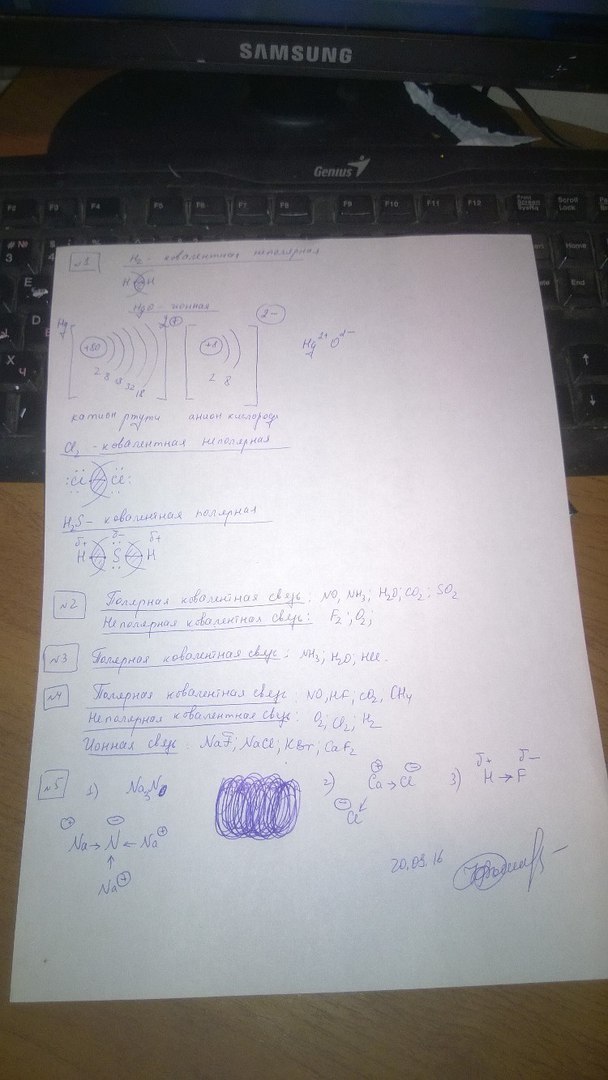 SAMSUNG
Genius
F2 F3 F4 F5 F6 F7 F8 F9 F10 F11 F12 Print Screen SysRq Scroll Lock
Home
End
№1 H2 - ковалентная неполярная
H H
HgO - ионная
Hg +80 2 8 18 32 18 2+ +8 2 8 2- Hg2+O2-
катион ртути анион кислорода
Cl2 - ковалентная неполярная
:Cl Cl:
H2S - ковалентная полярная
δ+ δ- δ+
H S H
№2 Полярная ковалентная связь: NO, NH3; H2O; CO2; SO2
Неполярная ковалентная связь: F2; O2;
№3 Полярная ковалентная связь: NH3; H2O; HCl.
№4 Полярная ковалентная связь: NO, HF, CO2, CH4
Неполярная ковалентная связь: O2; Cl2, H2
Ионная связь: NaF; NaCl; KBr; CaF2
№5 1) Na3N 2) Ca→Cl 3) H→F
+ - δ+ δ-
Cl
+ - +
Na→N←Na
↑
Na+
20.09.16